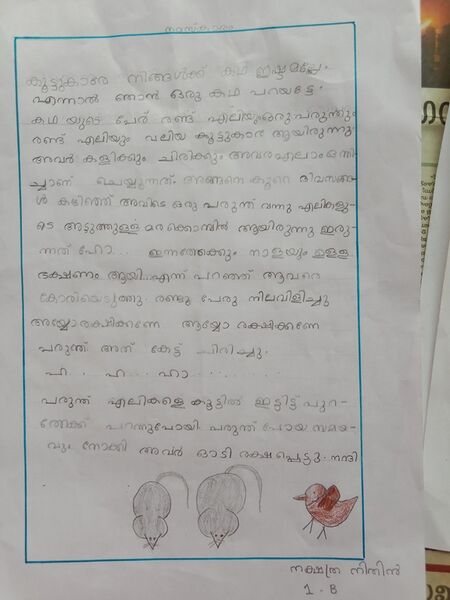 നമസ്കാരം
കൂട്ടുകാരെ നിങ്ങൾക്ക് കഥ ഇഷ്ടമല്ലേ.
എന്നാൽ ഞാൻ ഒരു കഥ പറയട്ടേ.
കഥയുടെ പേര് രണ്ട് എലിയും ഒരു പരുന്തും
രണ്ട് എലിയും വലിയ കൂട്ടുകാര് ആയിരുന്നു
അവർ കളിക്കും ചിരിക്കും അവരെല്ലാം ഒന്നി
ച്ചാണ് ചെയ്യുന്നത്. അങ്ങനെ കുറെ ദിവസങ്ങ
ൾ കഴിഞ്ഞ് അവിടെ ഒരു പരുന്ത് വന്നു എലികളു
ടെ അടുത്തുള്ള മരക്കൊമ്പിൽ ആയിരുന്നു ഇരു
ന്നത് ഹോ... ഇന്നത്തേക്കും നാളയും ഉള്ള
ഭക്ഷണം ആയി... എന്ന് പറഞ്ഞ് അവരെ
കോരിയെടുത്തു. രണ്ടു പേരു നിലവിളിച്ചു
അയ്യോ രക്ഷിക്കണേ ആയ്യോ രക്ഷിക്കണേ
പരുന്ത് അത് കേട്ട് ചിരിച്ചു.
ഹി .. ഹ .... ഹാ ..........
പരുന്ത് എലികളെ കൂട്ടിൽ ഇട്ടിട്ട് പുറ-
ത്തേക്ക് പറന്നുപോയി. പരുന്ത് പോയ സമയ-
വും നോക്കി അവർ ഓടി രക്ഷപ്പെട്ടു. നന്ദി
നക്ഷത്ര നിതിൻ
1. B